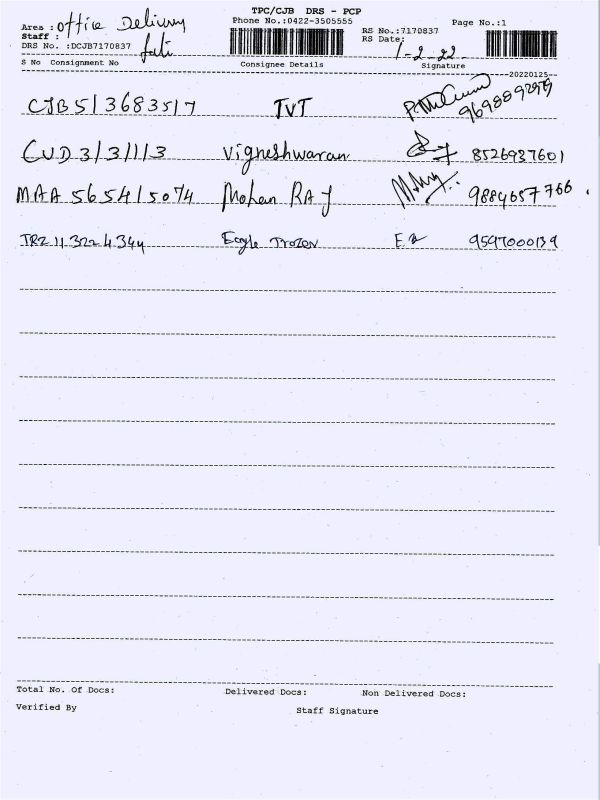 TPC/CJB DRS - PCP
Area : Office Delivery Phone No.:0422-3505555 Page No.:1
Staff : RS No.:7170837
DRS No. :DCJB7170837 RS Date: 1-2-22
S No Consignment No Consignee Details Signature
--20220125--
CJB513683517 TVT 9698892979
CUD 3131113 Vigneshwaran 8526937601
MAA 565415074 Mohan RAJ 9884657766
TRZ 11 322 4 344 Eagle Trozen 9597000139
Total No. Of Docs: Delivered Docs: Non Delivered Docs:
Verified By Staff Signature